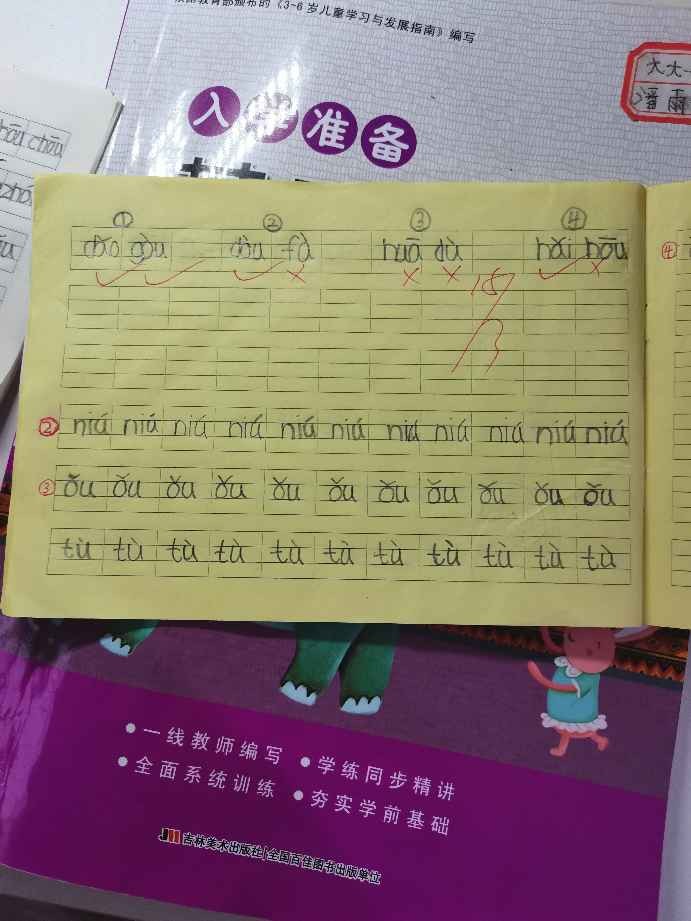 依据教育部颁布的《3-6 岁儿童学习与发展指南》编写
大大一
潘雨
入学准备
hōu chōu
① ② ③ ④ ④
gǒu dòu fà huā dù hǎi hōu
② niú niú niú niú niú niú niú niú niú niú niú
③ ǒu ǒu ǒu ǒu ǒu ǒu ǒu ǒu ǒu ǒu ǒu
tù tù tù tù tù tù tù tù tù tù tù
● 一线教师编写 ● 学练同步精讲
● 全面系统训练 ● 夯实学前基础
吉林美术出版社|全国百佳图书出版单位